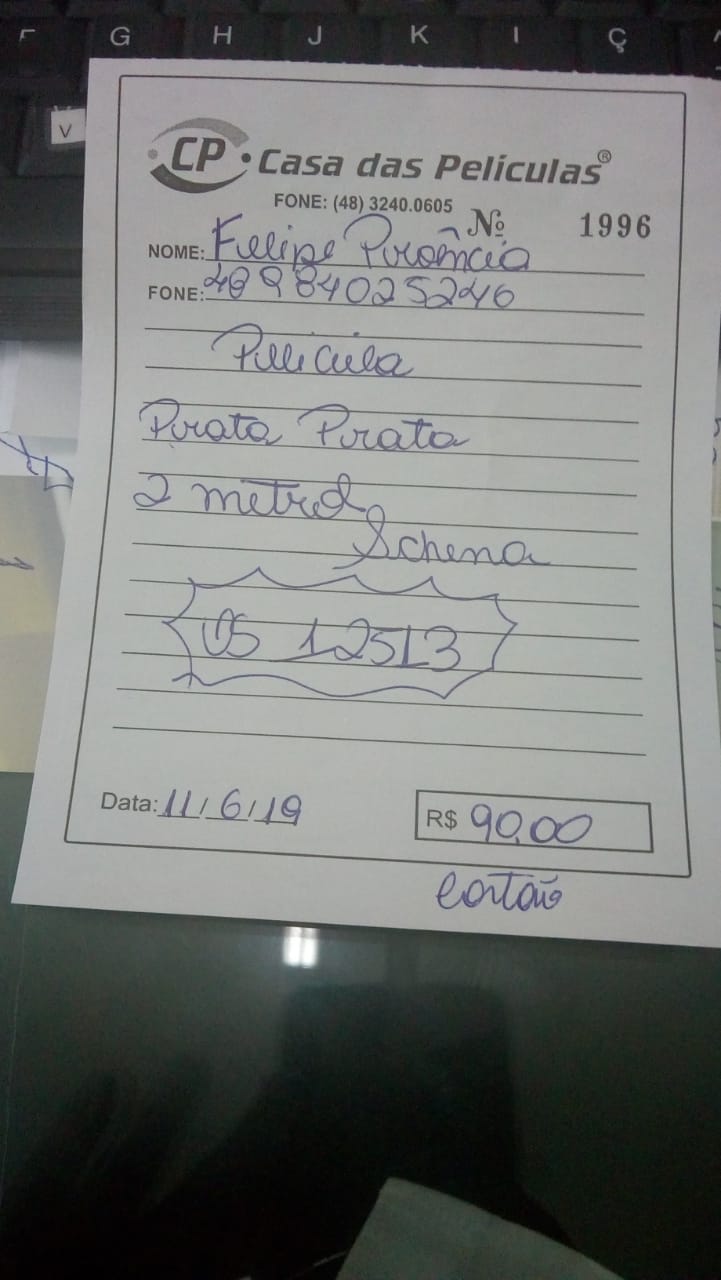 G H J K L Ç
V
CP Casa das Películas®
FONE: (48) 3240.0605
Nº 1996
NOME: Fellipe
FONE: 48 984025246
Pillicula
Prata Prata
2 metros
Schena
OS 12513
Data: 11/6/19
R$ 90,00
Cartão